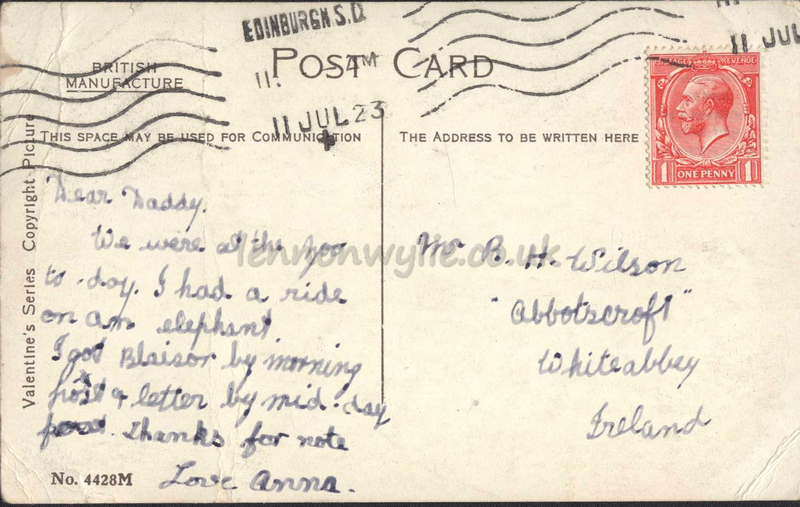 EDINBURGH S.D.
11. AM
11 JUL 23
11 JUL
POST CARD
BRITISH
MANUFACTURE
THIS SPACE MAY BE USED FOR COMMUNICATION
THE ADDRESS TO BE WRITTEN HERE
POSTAGE REVENUE
1 ONE PENNY 1
Valentine's Series Copyright Picture
Dear Daddy.
We were at the Zoo
to-day. I had a ride
on an elephant
I got Blaisor by morning
post & letter by mid-day
post. Thanks for note
Love Anna.
Mr B. H. Wilson
"Abbotscroft"
Whiteabbey
Ireland
No. 4428M
lennonwylie.co.uk